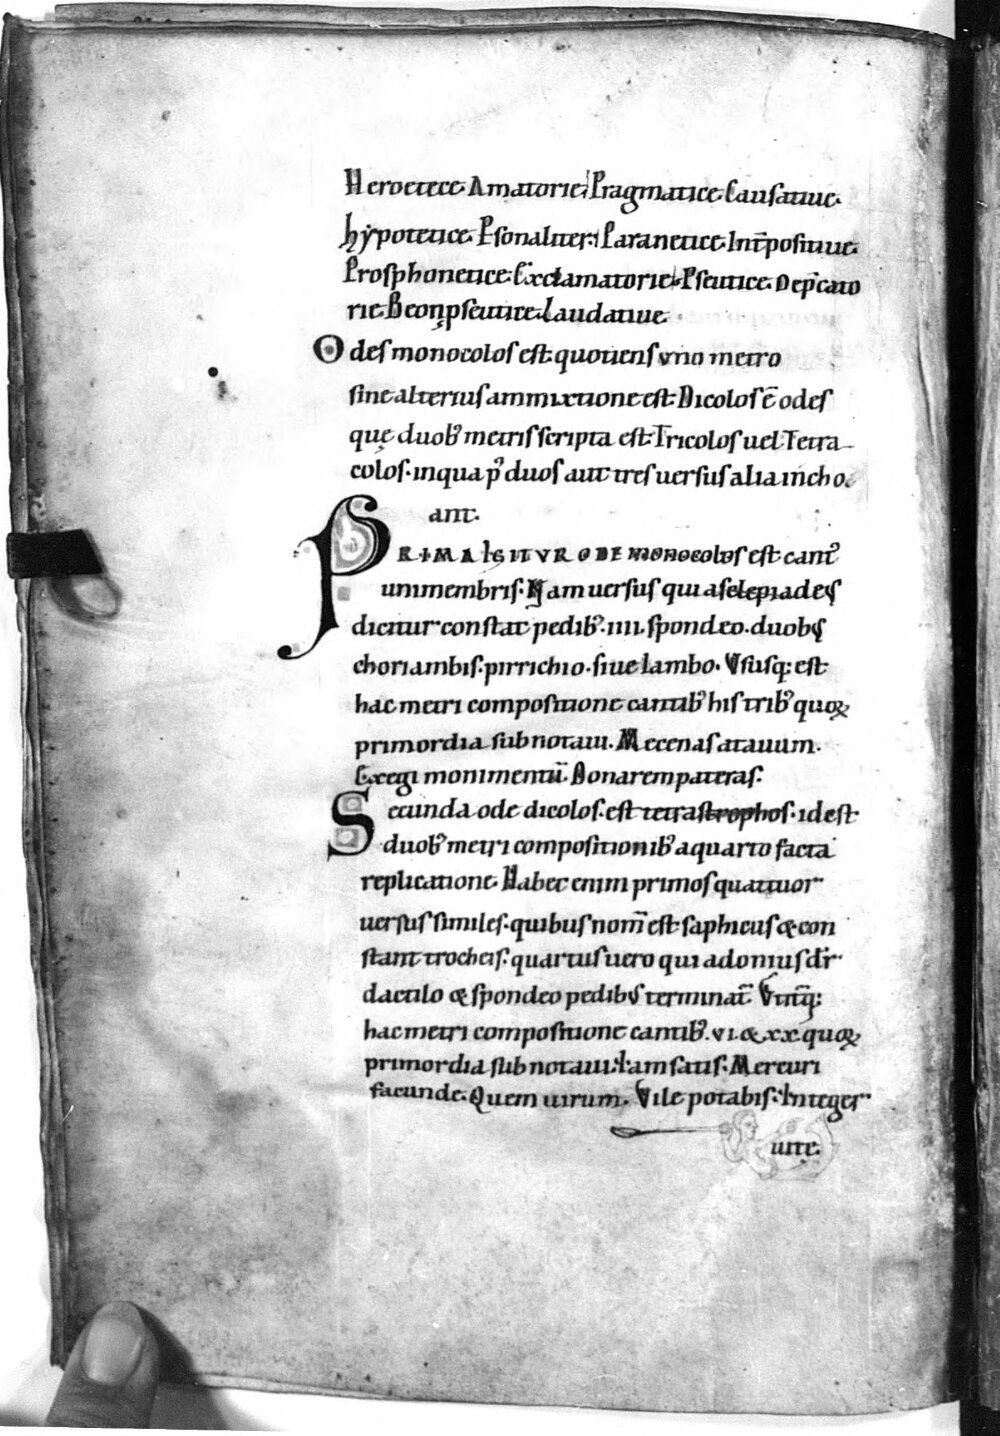 Heroetece. Amatorie. Pragmatice. Causatiue.
hypotetice. Psonaliter. Paranetice. Int̄positiue.
Prosphonetice. Exclamatorie. Pseutice. Dep̄cato
rie. Beonpseutice. Laudatiue.
Odes monocolos est quotiens uno metro
sine alterius ammixtione est. Dicolos ē odes
quę duob᾽ metris scripta est. Tricolos uel Tetra
colos. in qua p᾽ duos aut tres uersus alia incho
ant.
PRIMA IGITVR ODE MONOcolos est cant᾽
unimembris. Nam uersus qui asclepiadeus
dicitur constat pedib᾽. IIII. spondeo. duobus
choriambis. pirrichio. siue Iambo. Vsusq: est
hac metri compositione cantib᾽ his trib᾽ quoꝝ
primordia subnotaui. Mecenas atauum.
Exegi monimentū. Donarem pateras.
Secunda ode dicolos. est tetrastrophos. id est
duob᾽ metri compositionib᾽ a quarto facta
replicatione. Habec enim primos quattuor
uersus similes. quibus nom̄ est saphicus & con
stant trocheis. quartus uero qui adonius dr̄
dactilo & spondeo pedibus terminat᾽. Vtitq̄:
hac metri compositione cantib᾽. VI. & XX. quoꝝ
primordia subnotaui. Iam satis. Mercuri
facunde. Quem uirum. Vile potabis. Integer
uitę.